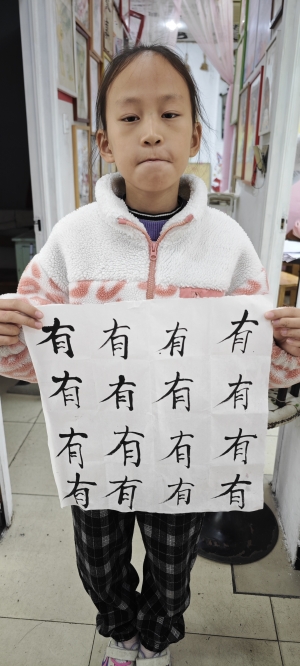 有有有有
有有有有
有有有有
有有有有